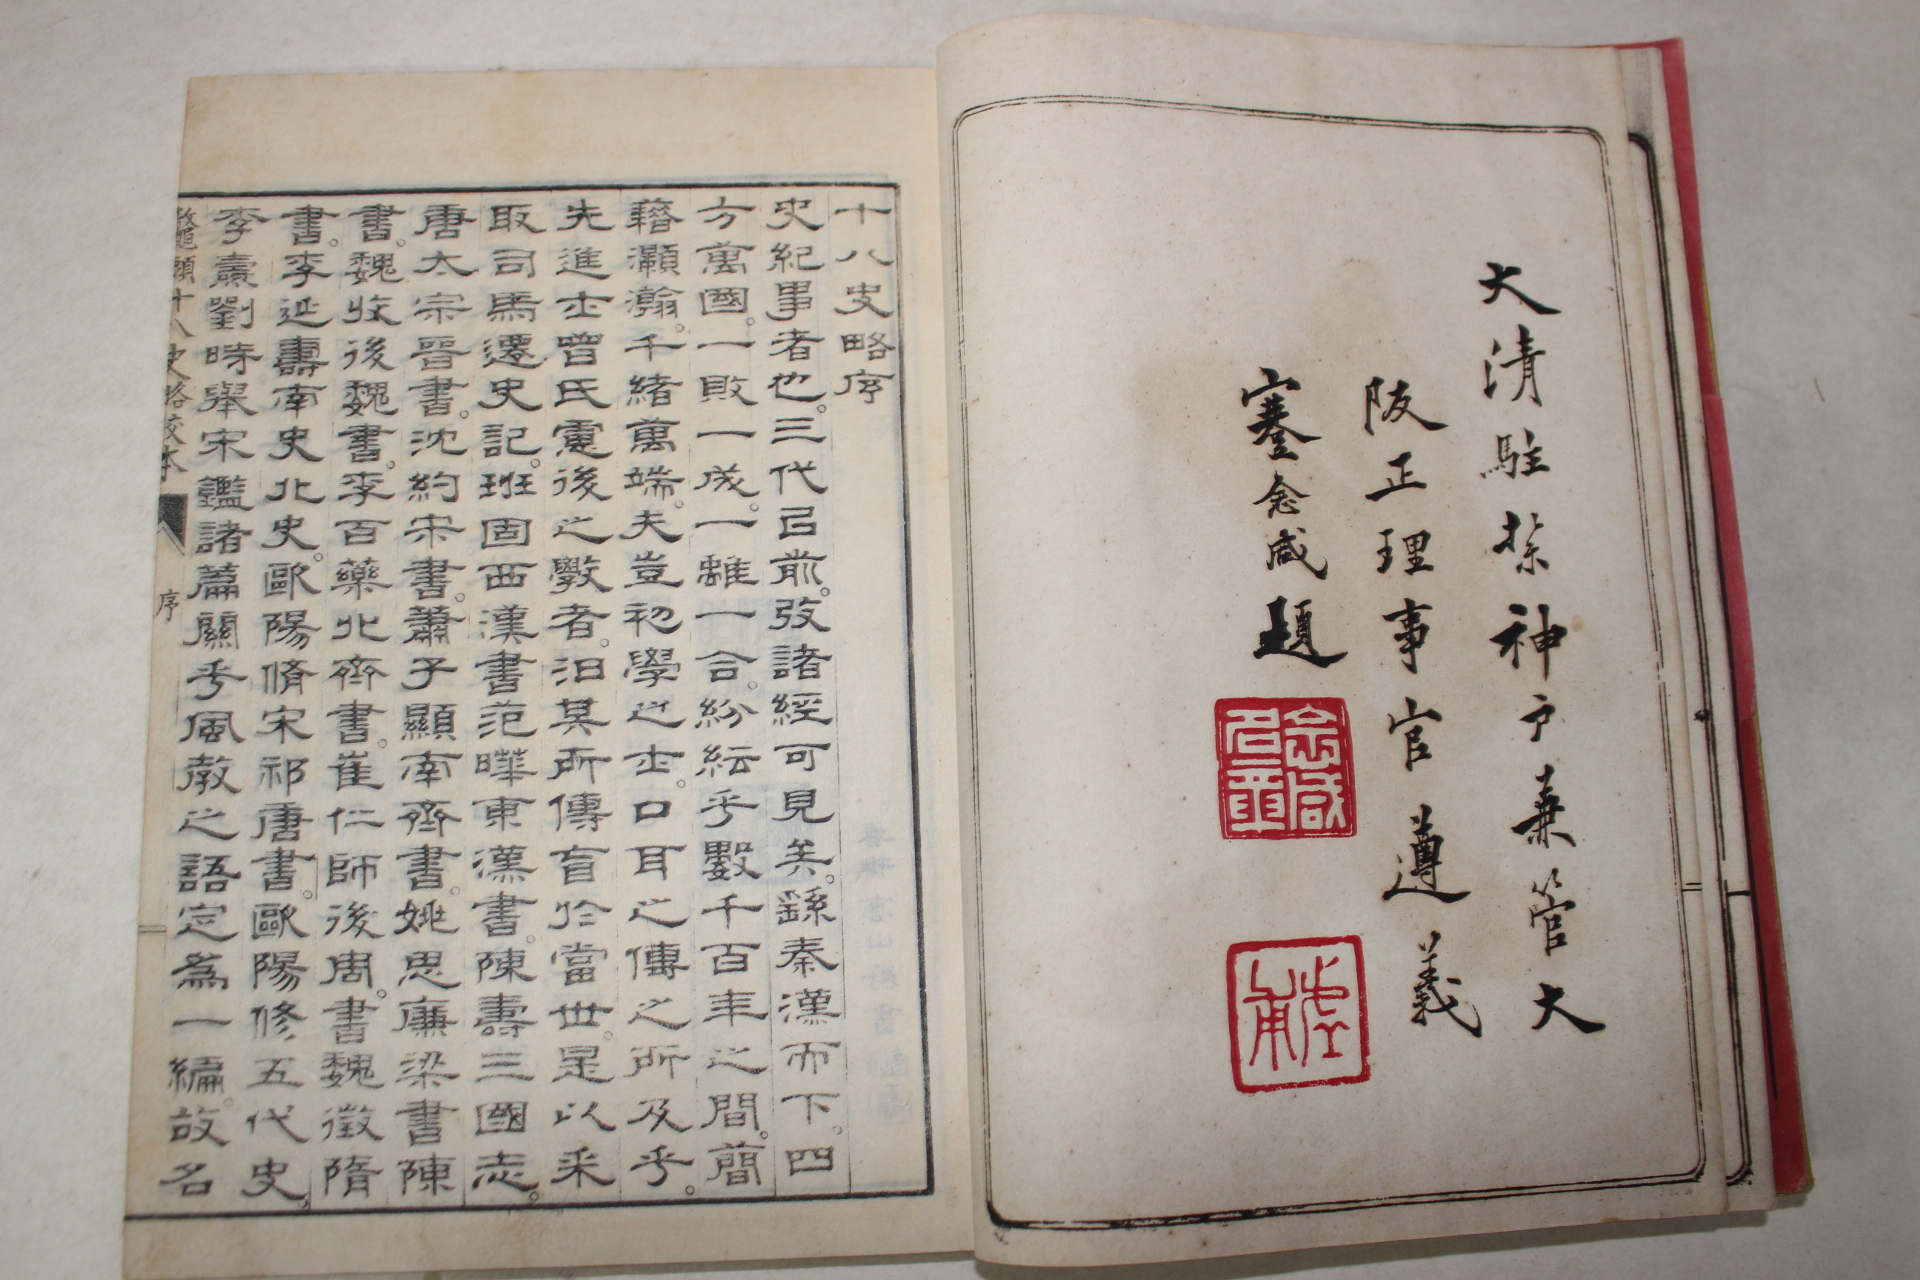 大清駐紮神戶兼管大
阪正理事官遵義
蹇念咸題
念咸名章
十八史略序
史紀事者也。三代已前。攷諸經可見矣。繇秦漢而下。四
方萬國。一敗一成。一離一合。紛紜乎數千百年之間。簡
籍灝瀚。千緒萬端。夫豈初學之士。口耳之傳之所及乎。
先進士曾氏憲後之斅者。汨其所傳盲於當世。是以采
取司馬遷史記。班固西漢書范曄東漢書。陳壽三國志。
唐太宗晉書。沈約宋書。蕭子顯南齊書。姚思廉梁書陳
書。魏收後魏書。李百藥北齊書。崔仁師後周。書魏徵隋
書。李延壽南史北史。歐陽脩宋祁唐書。歐陽修五代史。
李燾劉時舉宋鑑諸篇關乎風教之語定爲一編。故名
鼇頭十八史略校本 序